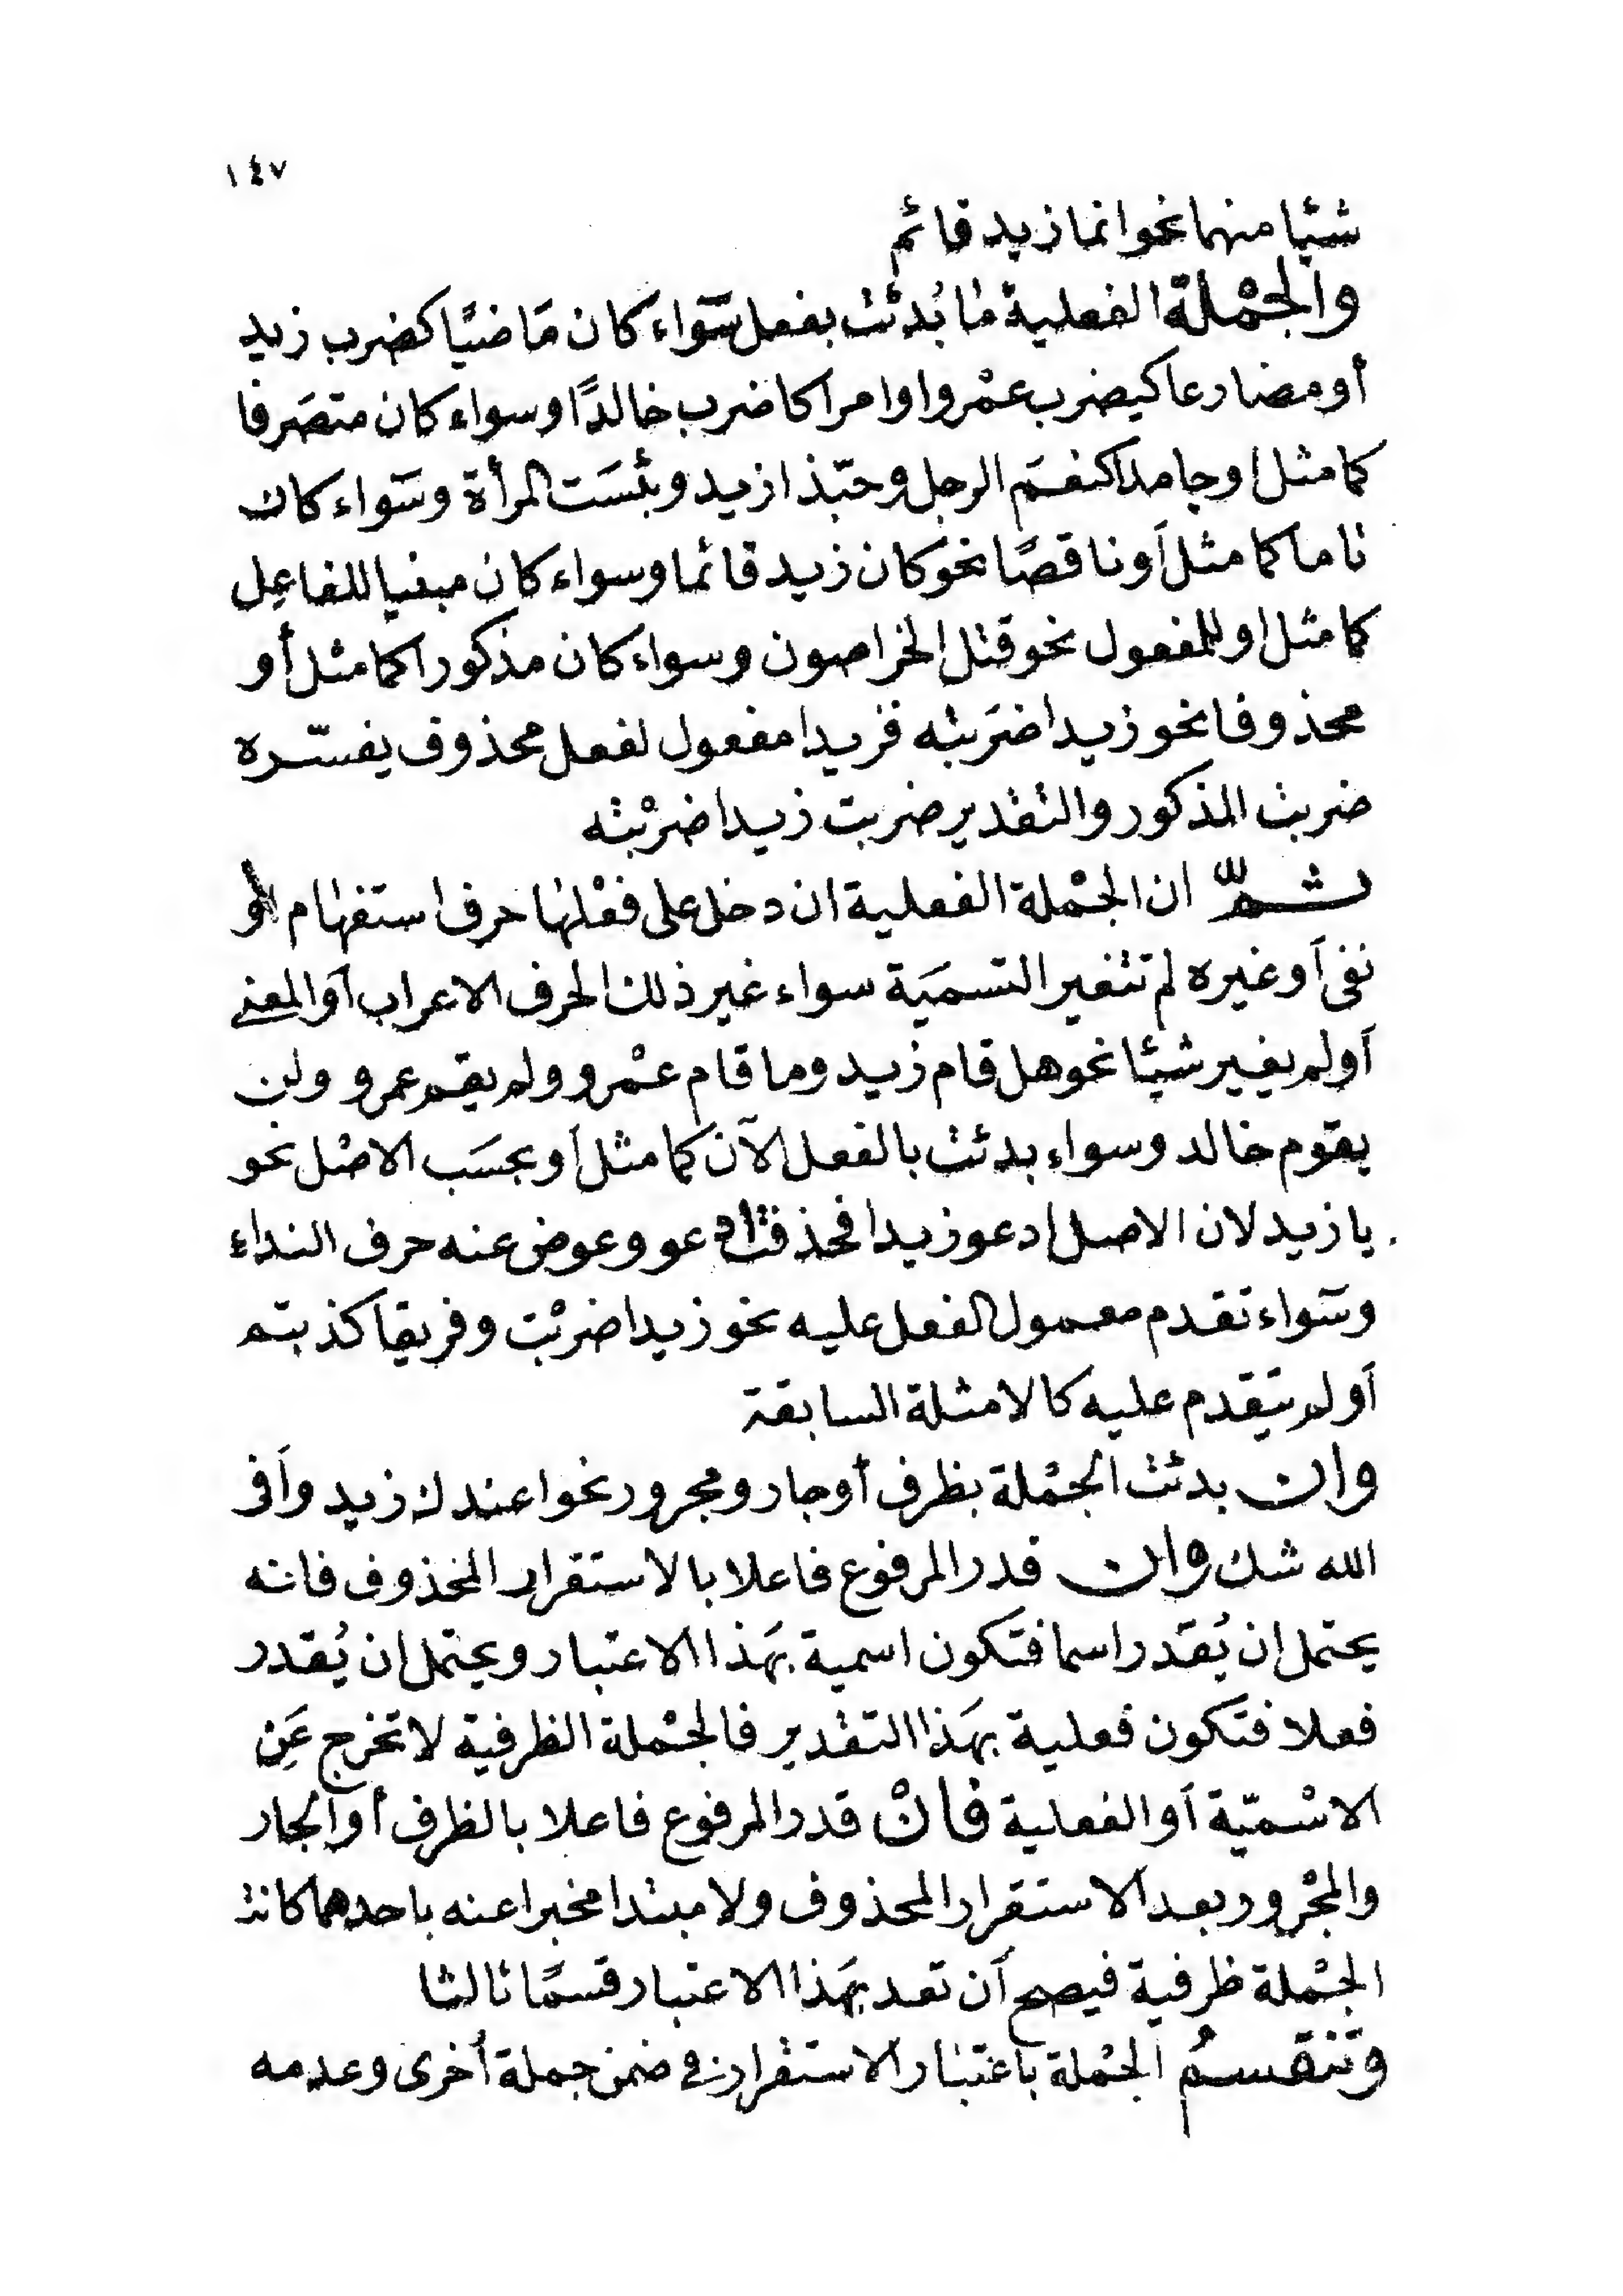 ١٤٧
شيئا منهما نحو انما زيد قائم
والجمْلة الفعلية مَا بُدئت بفعل سَوَاء كان مَاضيًا كضرب زيد
أو مضارعا كيضرب عمْروا او امرا كاضرب خالدًا وسواء كان متصَرفا
كما مثل اوجامدا كنعمَ الرجل وحبّذا زيد وبئسَت المرأة وسَواء كان
تاما كما مثل أو ناقصًا نحو كان زيد قائما وسواء كان مبنيا للفاعِل
كما مثل او للمفعول نحو قتل الخراصون وسواء كان مذكورا كما مثل أو
محذوفا نحو زيدا ضَربته فزيدا مفعول لفعل محذوف يفسّره
ضربت المذكور والتقدير ضربت زيدا ضرْبته
ثمّ ان الجمْلة الفعلية ان دخل على فعْلهَا حرف استفهام أو
نفى أو غيره لم تتغير التسميَة سواء غير ذلك الحرف الاعراب أو المعنى
أو لم يغير شيئا نحو هل قام زيد وما قام عمْرو ولم يقم عمرو ولن
يقوم خالد وسواء بدئت بالفعل الآن كما مثل أو بحسَب الاصْل نحو
يا زيد لان الاصل ادعو زيدا فحذفت ادعو وعوض عنه حرف النداء
وسَواء تقدم معمول الفعل عليه نحو زيدا ضربْت وفريقا كذبتم
أو لم يتقدم عليه كالامثلة السابقة
وان بدئت الجمْلة بظرف أو جار ومجرور نحو اعندك زيد وأفى
الله شك وان قدر المرفوع فاعلا بالاستقرار المحذوف فانه
يحتمل ان يُقدر اسما فتكون اسمية بهَذا الاعتبار ويحتمل ان يُقدر
فعلا فتكون فعلية بهَذا التقدير فالجمْلة الظرفية لا تخرج عَن
الاسْميّة أو الفعلية فانْ قدر المرفوع فاعلا بالظرف أو الجار
والمجْرور بعد الاستقرار المحذوف ولا مبتدا مخبرا عنه باحدهما كانت
الجمْلة ظرفية فيصح أن تعد بهَذا الاعتبار قسمًا ثالثا
وتنقسمُ الجمْلة باعتبار الاستقرار في ضمن جملة أخرى وعدمه